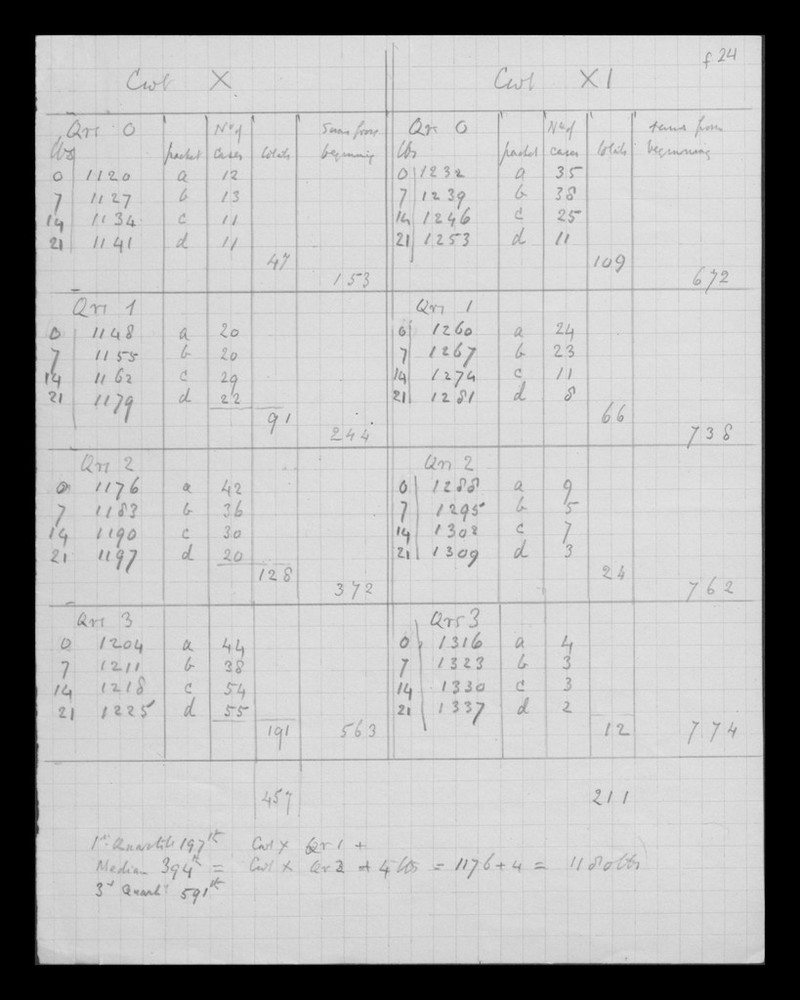 f 24
Cwt X
Qrs 0 packet Nº of cases totals Sums from beginning
lbs
0 1120 a 12
7 1127 b 13
14 1134 c 11
21 1141 d 11
47
153
Qrs 1
0 1148 a 20
7 1155 b 20
14 1162 c 29
21 1179 d 22
91
244
Qrs 2
0 1176 a 42
7 1183 b 36
14 1190 c 30
21 1197 d 20
128
372
Qrs 3
0 1204 a 44
7 1211 b 38
14 1218 c 54
21 1225 d 55
191 563
457
Cwt XI
Qrs 0 packet Nº of cases totals sums from beginning
lbs
0 1232 a 35
7 1239 b 38
14 1246 c 25
21 1253 d 11
109
672
Qrs 1
0 1260 a 24
7 1267 b 23
14 1274 c 11
21 1281 d 8
66
738
Qrs 2
0 1288 a 9
7 1295 b 5
14 1302 c 7
21 1309 d 3
24
762
Qrs 3
0 1316 a 4
7 1323 b 3
14 1330 c 3
21 1337 d 2
12 774
211
1st Quartile 197th Cwt X Qr 1 +
Median 394th = Cwt X Qr 2 + 4 lbs = 1176+4 = 1180 lbs
3d Quartl 591th